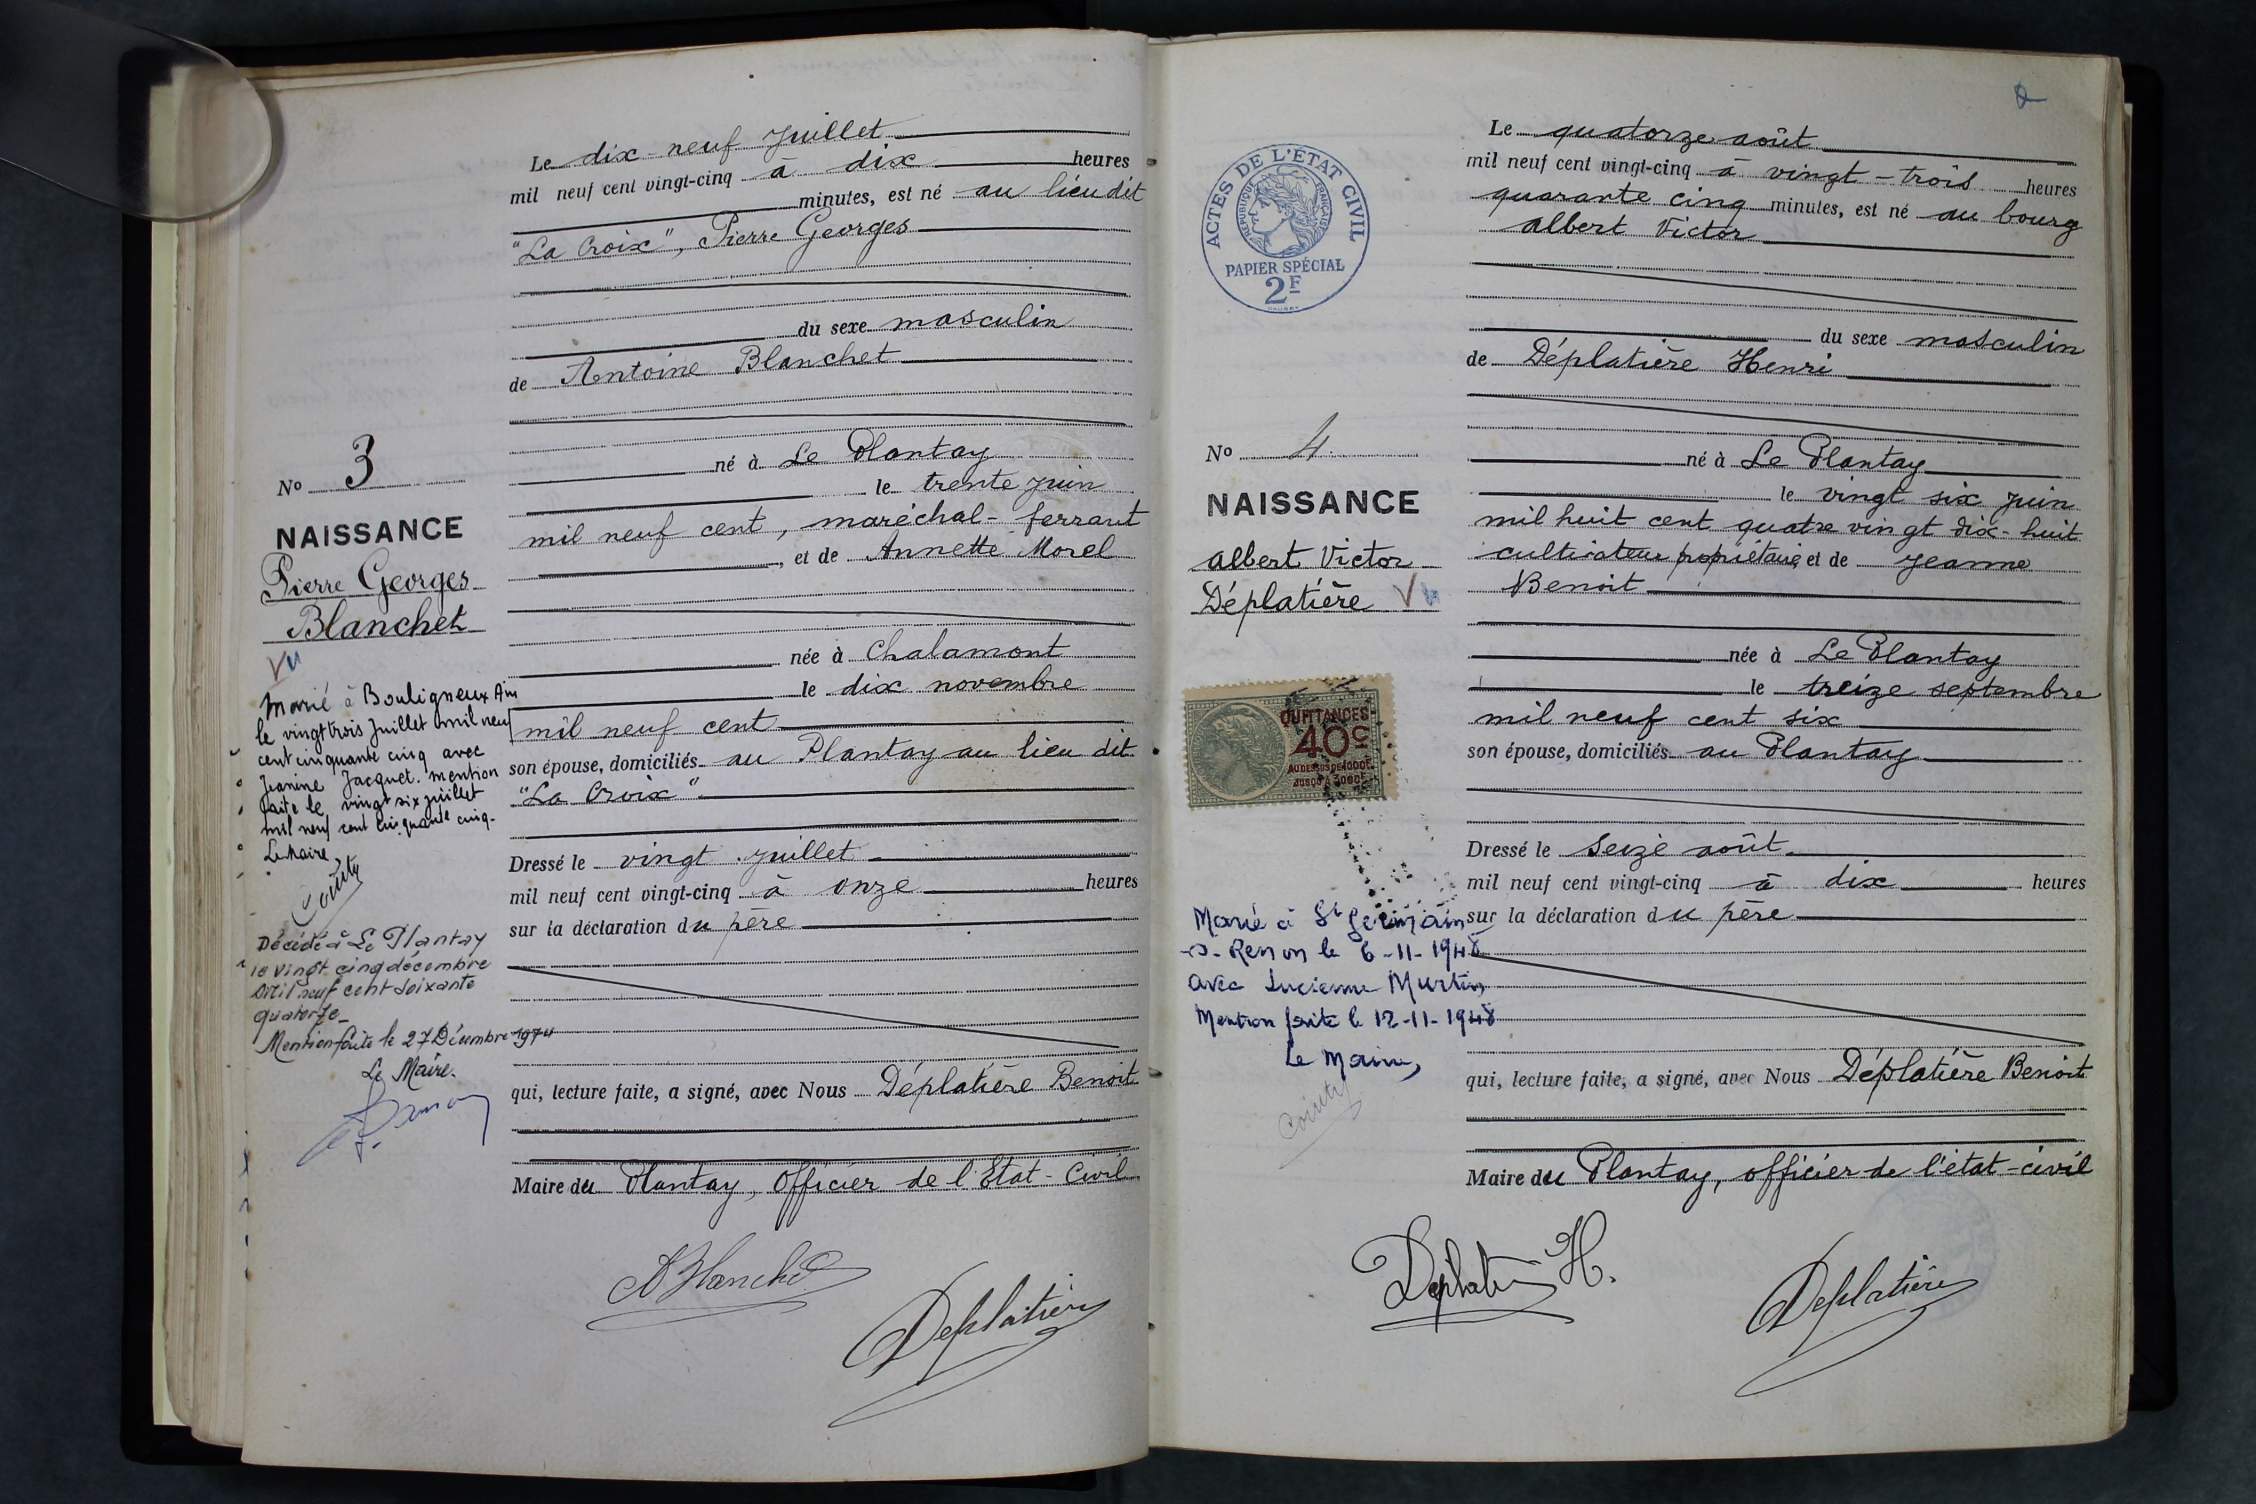 Le dix-neuf Juillet
mil neuf cent vingt-cinq à dix heures
minutes, est né au lieu dit
"La Croix", Pierre Georges
du sexe masculin
de Antoine Blanchet
né à Le Plantay
le trente Juin
mil neuf cent, maréchal-ferrant
, et de Annette Morel
née à Chalamont
le dix novembre
mil neuf cent
son épouse, domiciliés au Plantay au lieu dit
"La Croix".
Dressé le vingt Juillet
mil neuf cent vingt-cinq à onze heures
sur la déclaration du père
qui, lecture faite, a signé, avec Nous Déplatière Benoit
Maire du Plantay, Officier de l'Etat-Civil
ABlanchet
Deplatière
No 3
NAISSANCE
Pierre Georges
Blanchet
Vu
Marié à Bouligneux Ain
le vingt trois Juillet mil neuf
cent cinquante cinq avec
Jeanine Jacquet. mention
faite le vingt six juillet
mil neuf cent cinquante cinq.
Le Maire,
Décédé à Le Plantay
le vingt cinq décembre
mil neuf cent soixante
quatorze_
Mention faite le 27 Décembre 1974
Le Maire.
ACTES DE L'ÉTAT CIVIL
RÉPUBLIQUE FRANÇAISE
PAPIER SPÉCIAL
2F
No 4
NAISSANCE
Albert Victor
Déplatière Vu
QUITTANCES
40c
AU DESSUS DE 1000F
JUSQU'A 3000F
Marié à St Germain
-s- Renon le 6-11-1948
avec Lucienne Murtin
Mention faite le 12-11-1948
Le Maire,
Le quatorze août
mil neuf cent vingt-cinq à vingt-trois heures
quarante cinq minutes, est né au bourg
Albert Victor
du sexe masculin
de Déplatière Henri
né à Le Plantay
le vingt six juin
mil huit cent quatre vingt dix-huit
cultivateur propriétaire, et de Jeanne
Benoit
née à Le Plantay
le treize septembre
mil neuf cent six
son épouse, domiciliés au Plantay
Dressé le Seize août
mil neuf cent vingt-cinq à dix heures
sur la déclaration du père
qui, lecture faite, a signé, avec Nous Déplatière Benoit
Maire du Plantay, officier de l'état-civil
Deplatière H.
Deplatière